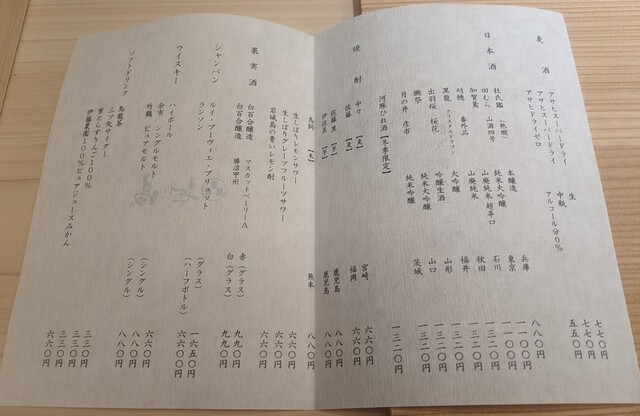 麦酒
アサヒスーパードライ 生 七七〇円
アサヒスーパードライ 中瓶 七七〇円
アサヒドライゼロ アルコール分0% 五五〇円
日本酒
杜氏鑑(熱燗) 本醸造 兵庫 八八〇円
田むら 山酒四号 純米大吟醸 東京 一一〇〇円
加賀鳶 山廃純米 超辛口 石川 一三二〇円
刈穂 番外品 山廃純米 秋田 一一〇〇円
黒龍 クリスタルドラゴン 大吟醸 福井 一三二〇円
出羽桜 桜花 吟醸生酒 山形 一一〇〇円
獺祭 純米大吟醸 山口 一三二〇円
月の井 彦市 純米吟醸 茨城 一三二〇円
河豚ひれ酒【冬季限定】 一三二〇円
焼酎
中々【麦】 宮崎 六六〇円
佐藤【麦】 福岡 六六〇円
佐藤 黒【芋】 鹿児島 八八〇円
伊佐美【芋】 鹿児島 八八〇円
鳥飼【米】 熊本 八八〇円
果実酒
生しぼりレモンサワー 六六〇円
生しぼりグレープフルーツサワー 六六〇円
岩城島の青いレモン酎 六六〇円
白百合醸造 マスカットベーリーA 赤(グラス) 九九〇円
白百合醸造 勝沼甲州 白(グラス) 九九〇円
シャンパン
ルイ・アーヴィエ・ブリュット (グラス) 一六五〇円
ランソン (ハーフボトル)
ウイスキー
ハイボール 六六〇円
余市 シングルモルト (シングル) 八八〇円
竹鶴 ピュアモルト (シングル) 八八〇円
ソフトドリンク
烏龍茶 三三〇円
三ツ矢サイダー 三三〇円
葉とらずりんご100% 三三〇円
伊藤農園100%ピュアジュースみかん 六六〇円